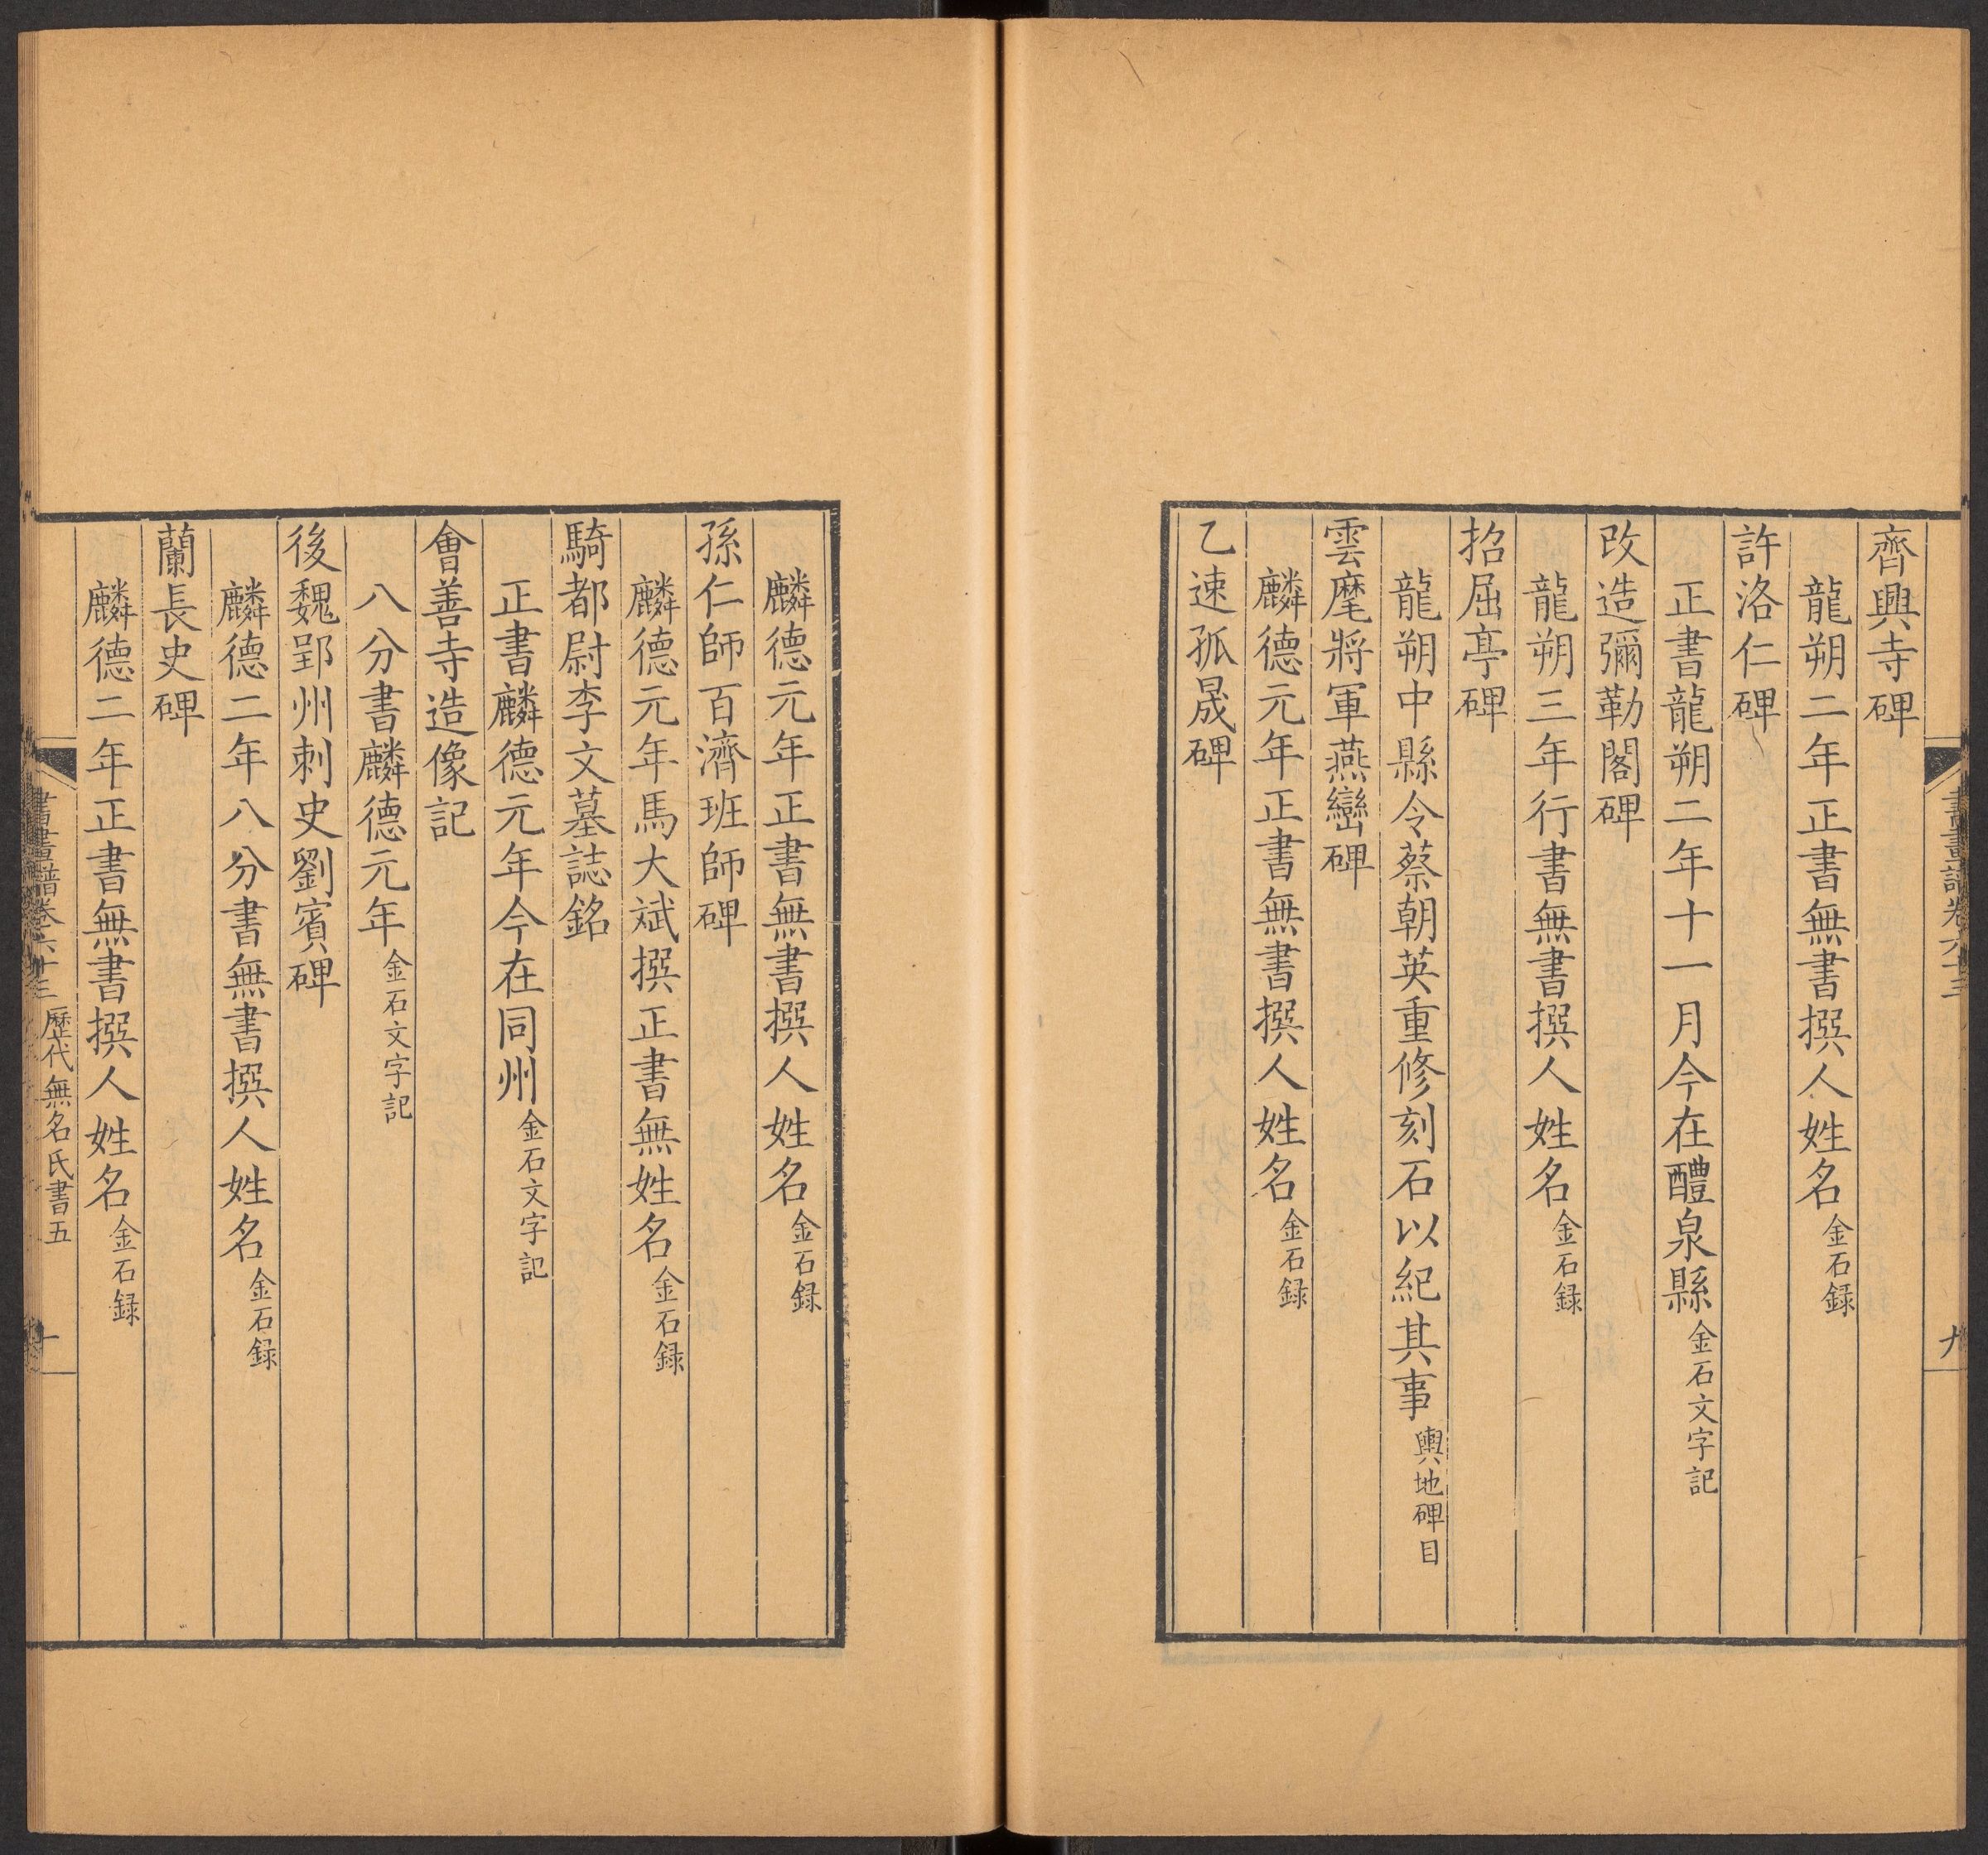 齊興寺碑
龍朔二年正書無書撰人姓名金石録
許洛仁碑
正書龍朔二年十一月今在醴泉縣金石文字記
改造彌勒閣碑
龍朔三年行書無書撰人姓名金石録
招屈亭碑
龍朔中縣令蔡朝英重修刻石以紀其事輿地碑目
雲麾將軍燕巒碑
麟德元年正書無書撰人姓名金石録
乙速孤晟碑
麟德元年正書無書撰人姓名金石録
孫仁師百濟班師碑
麟德元年馬大斌撰正書無姓名金石録
騎都尉李文墓誌銘
正書麟德元年今在同州金石文字記
會善寺造像記
八分書麟德元年金石文字記
後魏郢州刺史劉賓碑
麟德二年八分書無書撰人姓名金石録
蘭長史碑
麟德二年正書無書撰人姓名金石録
書畫譜卷六十三 歷代無名氏書五